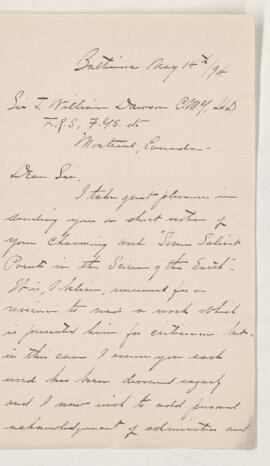 Baltimore May 14th/94
Sir J. William Dawson CMG, LLD
F.R.S, F.G.S. etc
Montreal, Canada-
Dear Sir,
I take great pleasure in
sending you a short notice of
your charming work "Some Salient
Points in the Science of the Earth".
It is, I believe, unusual for a
reviewer to read a work which
is presented him for criticism but
in this case I assure you each
word has been devoured eagerly
and I now wish to add personal
acknowledgment of admiration and